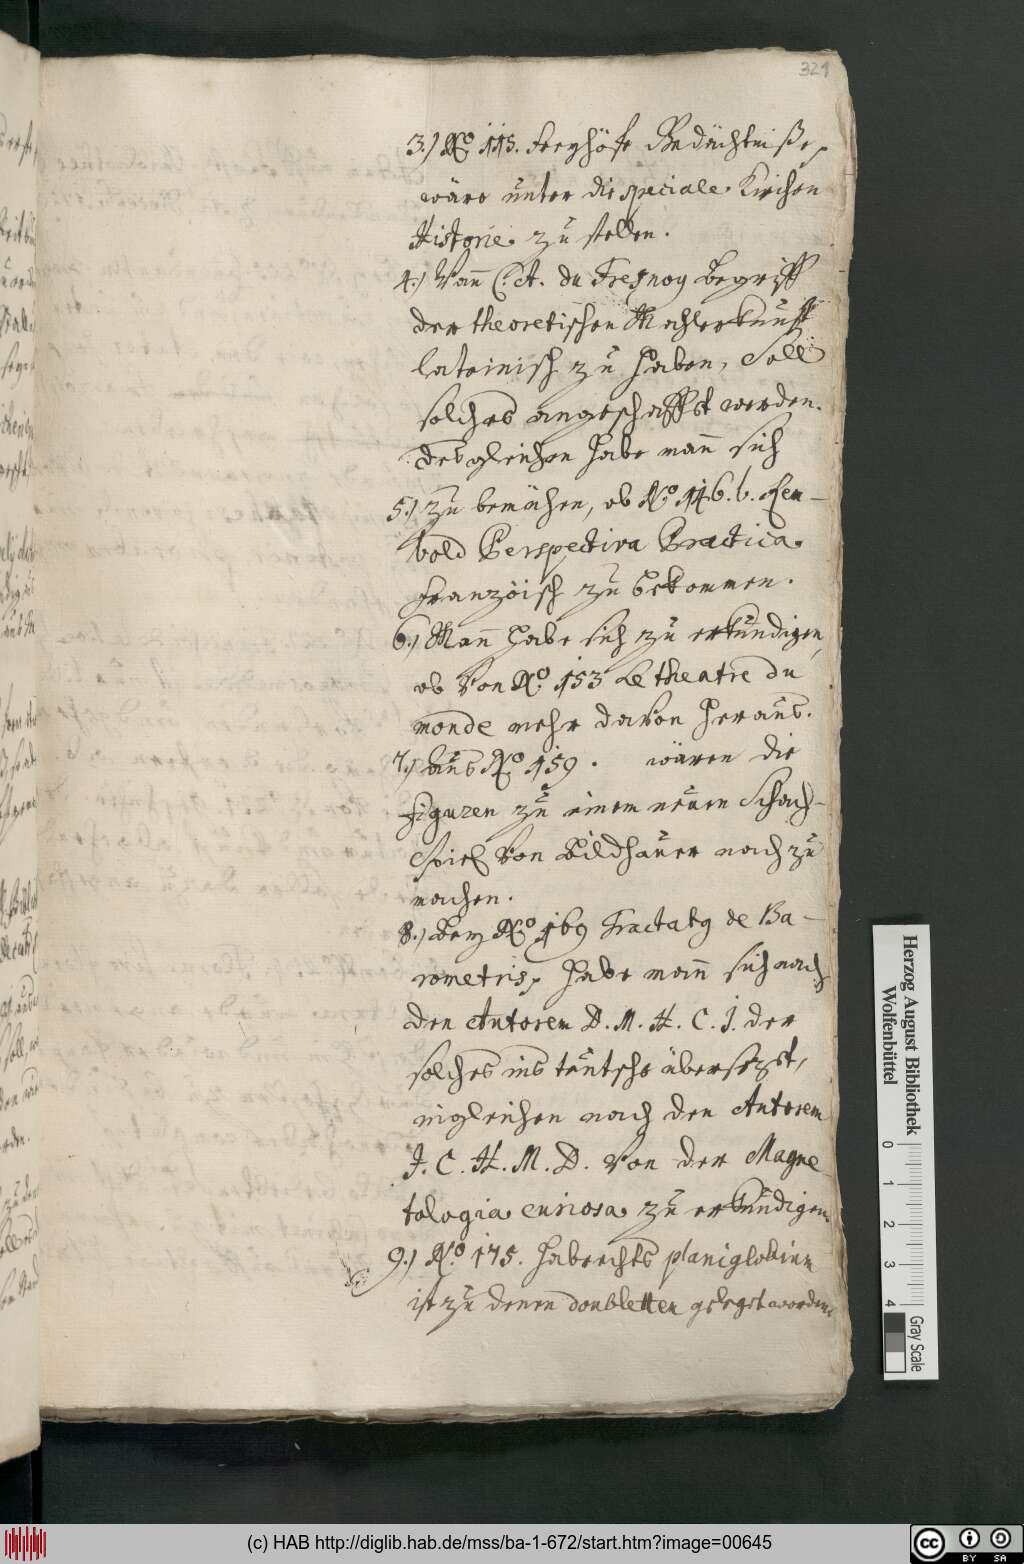 324
3.) No. 115. Freyhöfe Gedächtniße,
wäre unter die speciale Kirchen
Historie zu stellen.
4.) Wann C. A. du Fresnoy Begriff
der theoretischen Mahlerkunst
lateinisch zu haben, soll
solches angeschafft werden.
desgleichen habe mann sich
5.) zu bemühen, ob No. 146. b. Ren-
vold Perspectiva Practica
französisch zu bekommen.
6.) Mann habe sich zu erkundigen,
ob von No. 153 Le theatre du
monde mehr davon heraus.
7.) aus No. 159. wären die
figuren zu einem neuen Schach-
Spiel von Bildhauer nach zu
machen.
8.) Bey No. 169 Tractatg de Ba-
rometris, habe mann sich nach
den Autoren D. M. H. C. J. der
solches ins teutsche übersezt,
ingleichen nach den Autorem
J. C. H. M. D. von der Magne-
tologia curiosa zu erkundigen.
9.) No. 175. Habrechts planiglobium
ist zu denen doubletten gelegt worden.
Herzog August Bibliothek
Wolfenbüttel
0 1 2 3 4
Gray Scale
(c) HAB http://diglib.hab.de/mss/ba-1-672/start.htm?image=00645
cc BY SA